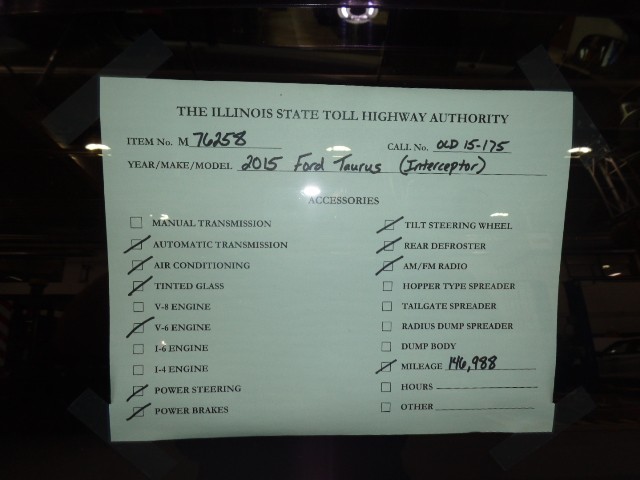 THE ILLINOIS STATE TOLL HIGHWAY AUTHORITY
ITEM No. M 76258 CALL No. OLD 15-175
YEAR/MAKE/MODEL 2015 Ford Taurus (Interceptor)
ACCESSORIES
MANUAL TRANSMISSION
AUTOMATIC TRANSMISSION
AIR CONDITIONING
TINTED GLASS
V-8 ENGINE
V-6 ENGINE
I-6 ENGINE
I-4 ENGINE
POWER STEERING
POWER BRAKES
TILT STEERING WHEEL
REAR DEFROSTER
AM/FM RADIO
HOPPER TYPE SPREADER
TAILGATE SPREADER
RADIUS DUMP SPREADER
DUMP BODY
MILEAGE 146,988
HOURS
OTHER